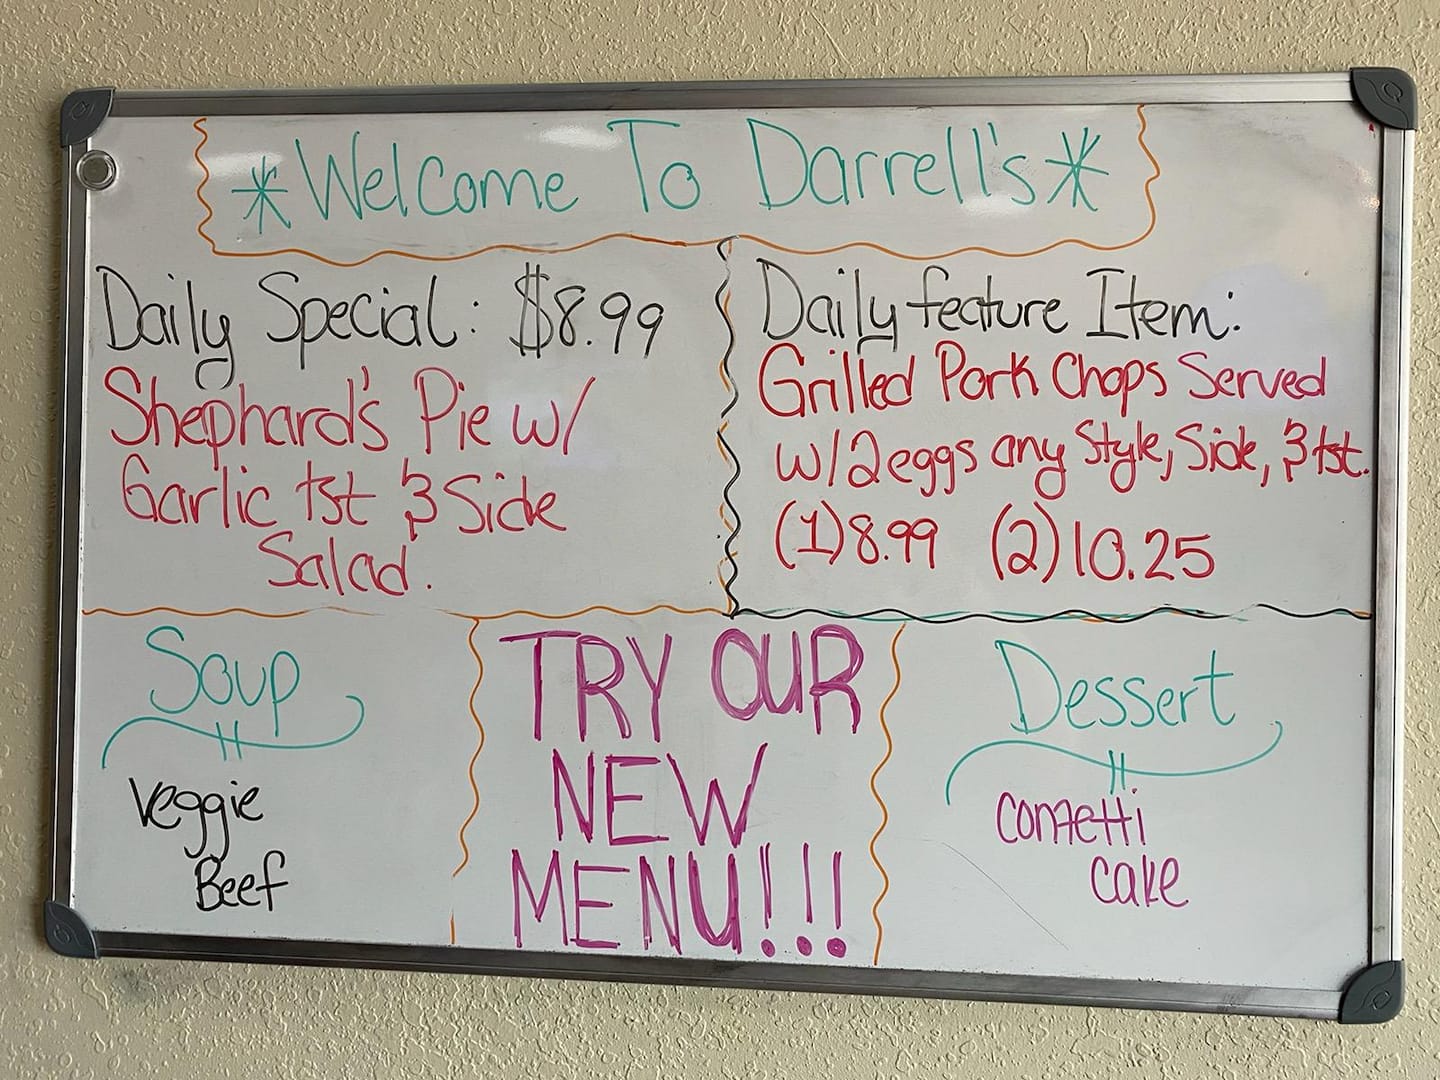 *Welcome To Darrell's*
Daily Special: $8.99
Shephard's Pie w/
Garlic tst & Side
Salad.
Daily feature Item:
Grilled Pork Chops Served
w/2 eggs any Style, Side, & tst.
(1) 8.99 (2) 10.25
Soup
Veggie
Beef
TRY OUR
NEW
MENU!!!
Dessert
Confetti
cake